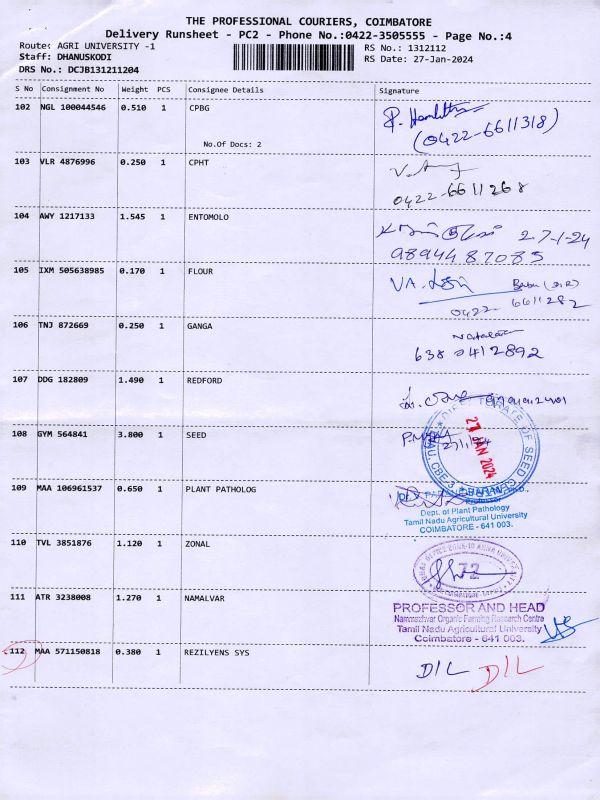 THE PROFESSIONAL COURIERS, COIMBATORE
Delivery Runsheet - PC2 - Phone No.:0422-3505555 - Page No.:4
Route: AGRI UNIVERSITY -1
RS No.: 1312112
Staff: DHANUSKODI
RS Date: 27-Jan-2024
DRS No.: DCJB131211204
S No Consignment No Weight PCS Consignee Details Signature
102 NGL 100044546 0.510 1 CPBG
No.Of Docs: 2
(0422-6611318)
103 VLR 4876996 0.250 1 CPHT
0422-6611268
104 AWY 1217133 1.545 1 ENTOMOLO
27-1-24
9894487085
105 IXM 505638985 0.170 1 FLOUR
0422-
6611282
106 TNJ 872669 0.250 1 GANGA
638 0412892
107 DDG 182809 1.490 1 REDFORD
108 GYM 564841 3.800 1 SEED
27 JAN 2024
109 MAA 106961537 0.650 1 PLANT PATHOLOG
Professor
Dept. of Plant Pathology
Tamil Nadu Agricultural University
COIMBATORE - 641 003.
110 TVL 3851876 1.120 1 ZONAL
72
111 ATR 3238008 1.270 1 NAMALVAR
PROFESSOR AND HEAD
Nammazhvar Organic Farming Research Centre
Tamil Nadu Agricultural University
Coimbatore - 641 003.
112 MAA 571150818 0.380 1 REZILYENS SYS
D/L D/L